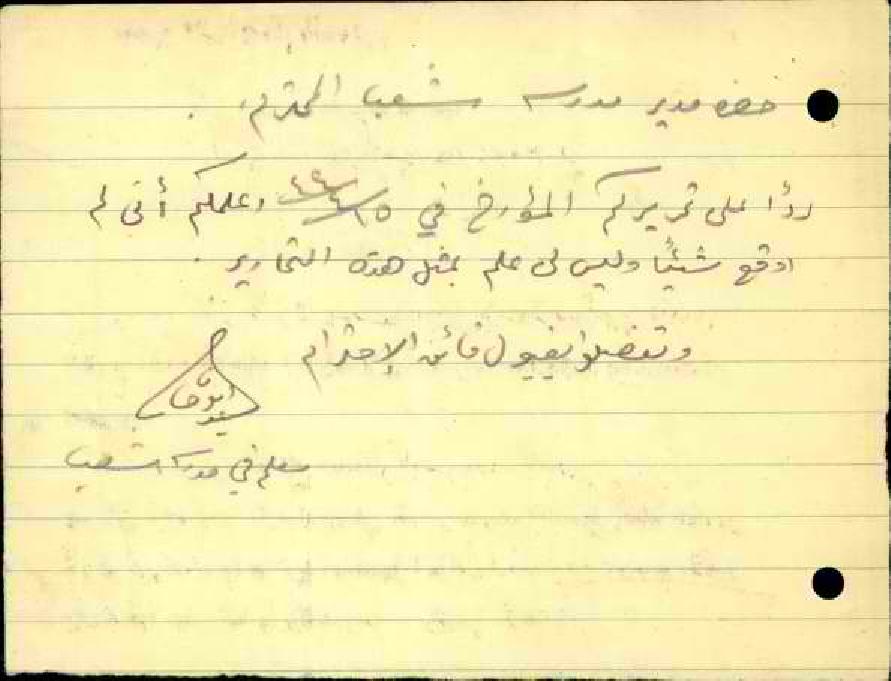 حضرة مدير مدرسة شعب المحترم.
ردًا على تحريركم المؤرخ في اعلمكم أني لم
اوقع شيئًا وليس لي علم بمثل هذه التحارير.
وتفضلوا بقبول فائق الإحترام
معلم في مدرسة شعب